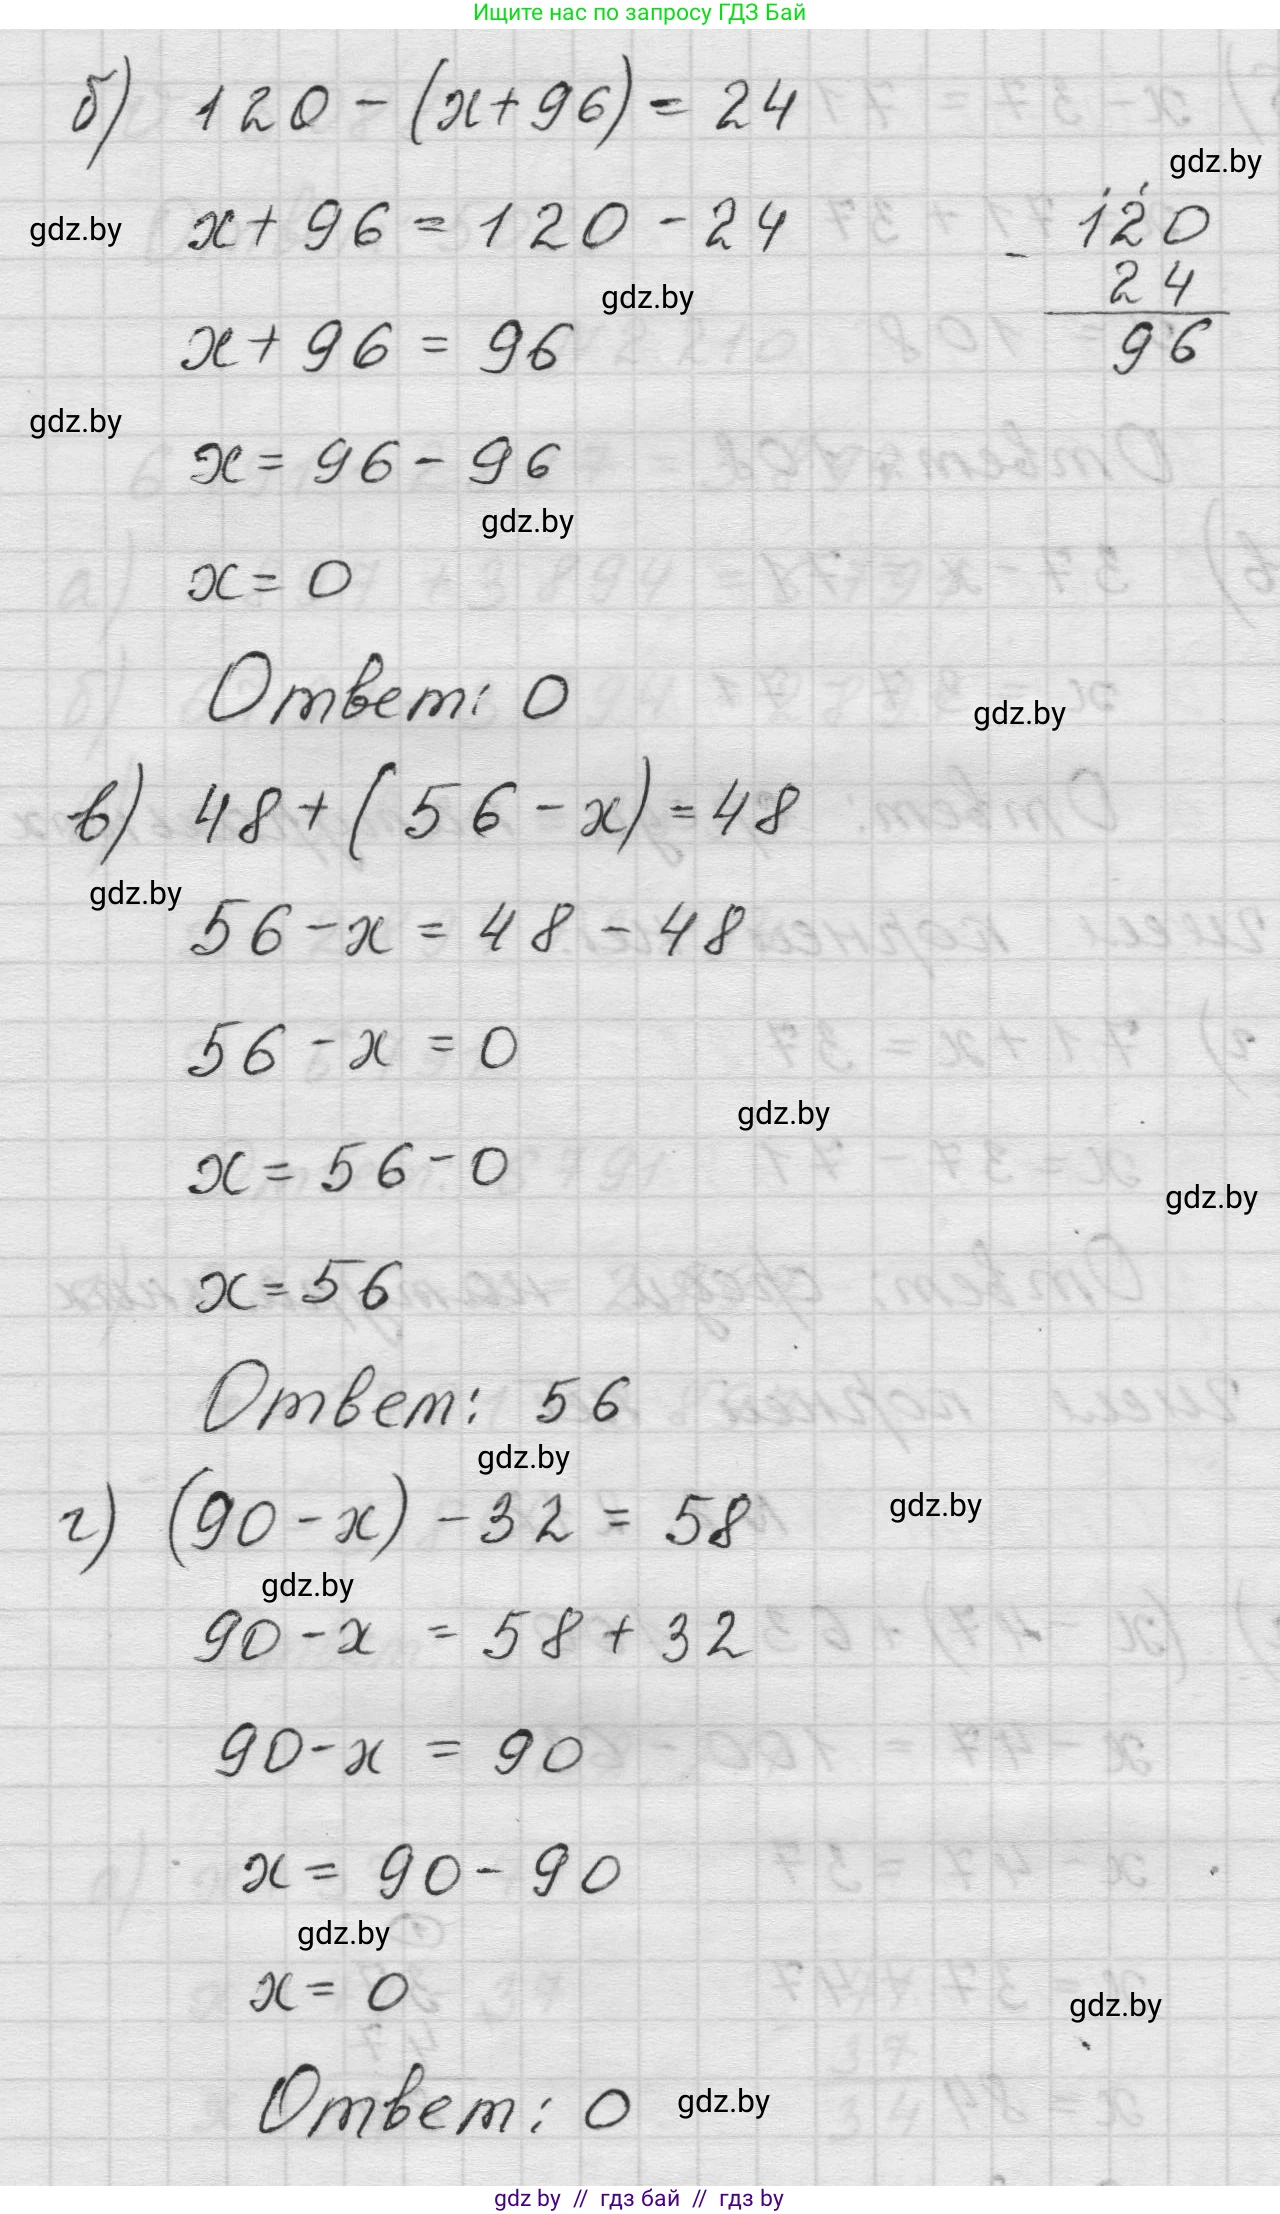 Ищите нас по запросу ГДЗ Бай
б) 120 - (x + 96) = 24
gdz.by
gdz.by
x + 96 = 120 - 24
120
- 24
96
gdz.by
x + 96 = 96
gdz.by
x = 96 - 96
gdz.by
x = 0
Ответ: 0
gdz.by
в) 48 + (56 - x) = 48
gdz.by
56 - x = 48 - 48
56 - x = 0
gdz.by
x = 56 - 0
gdz.by
x = 56
Ответ: 56
gdz.by
г) (90 - x) - 32 = 58
gdz.by
gdz.by
90 - x = 58 + 32
90 - x = 90
x = 90 - 90
gdz.by
x = 0
gdz.by
Ответ: 0
gdz.by
gdz by // гдз бай // гдз by